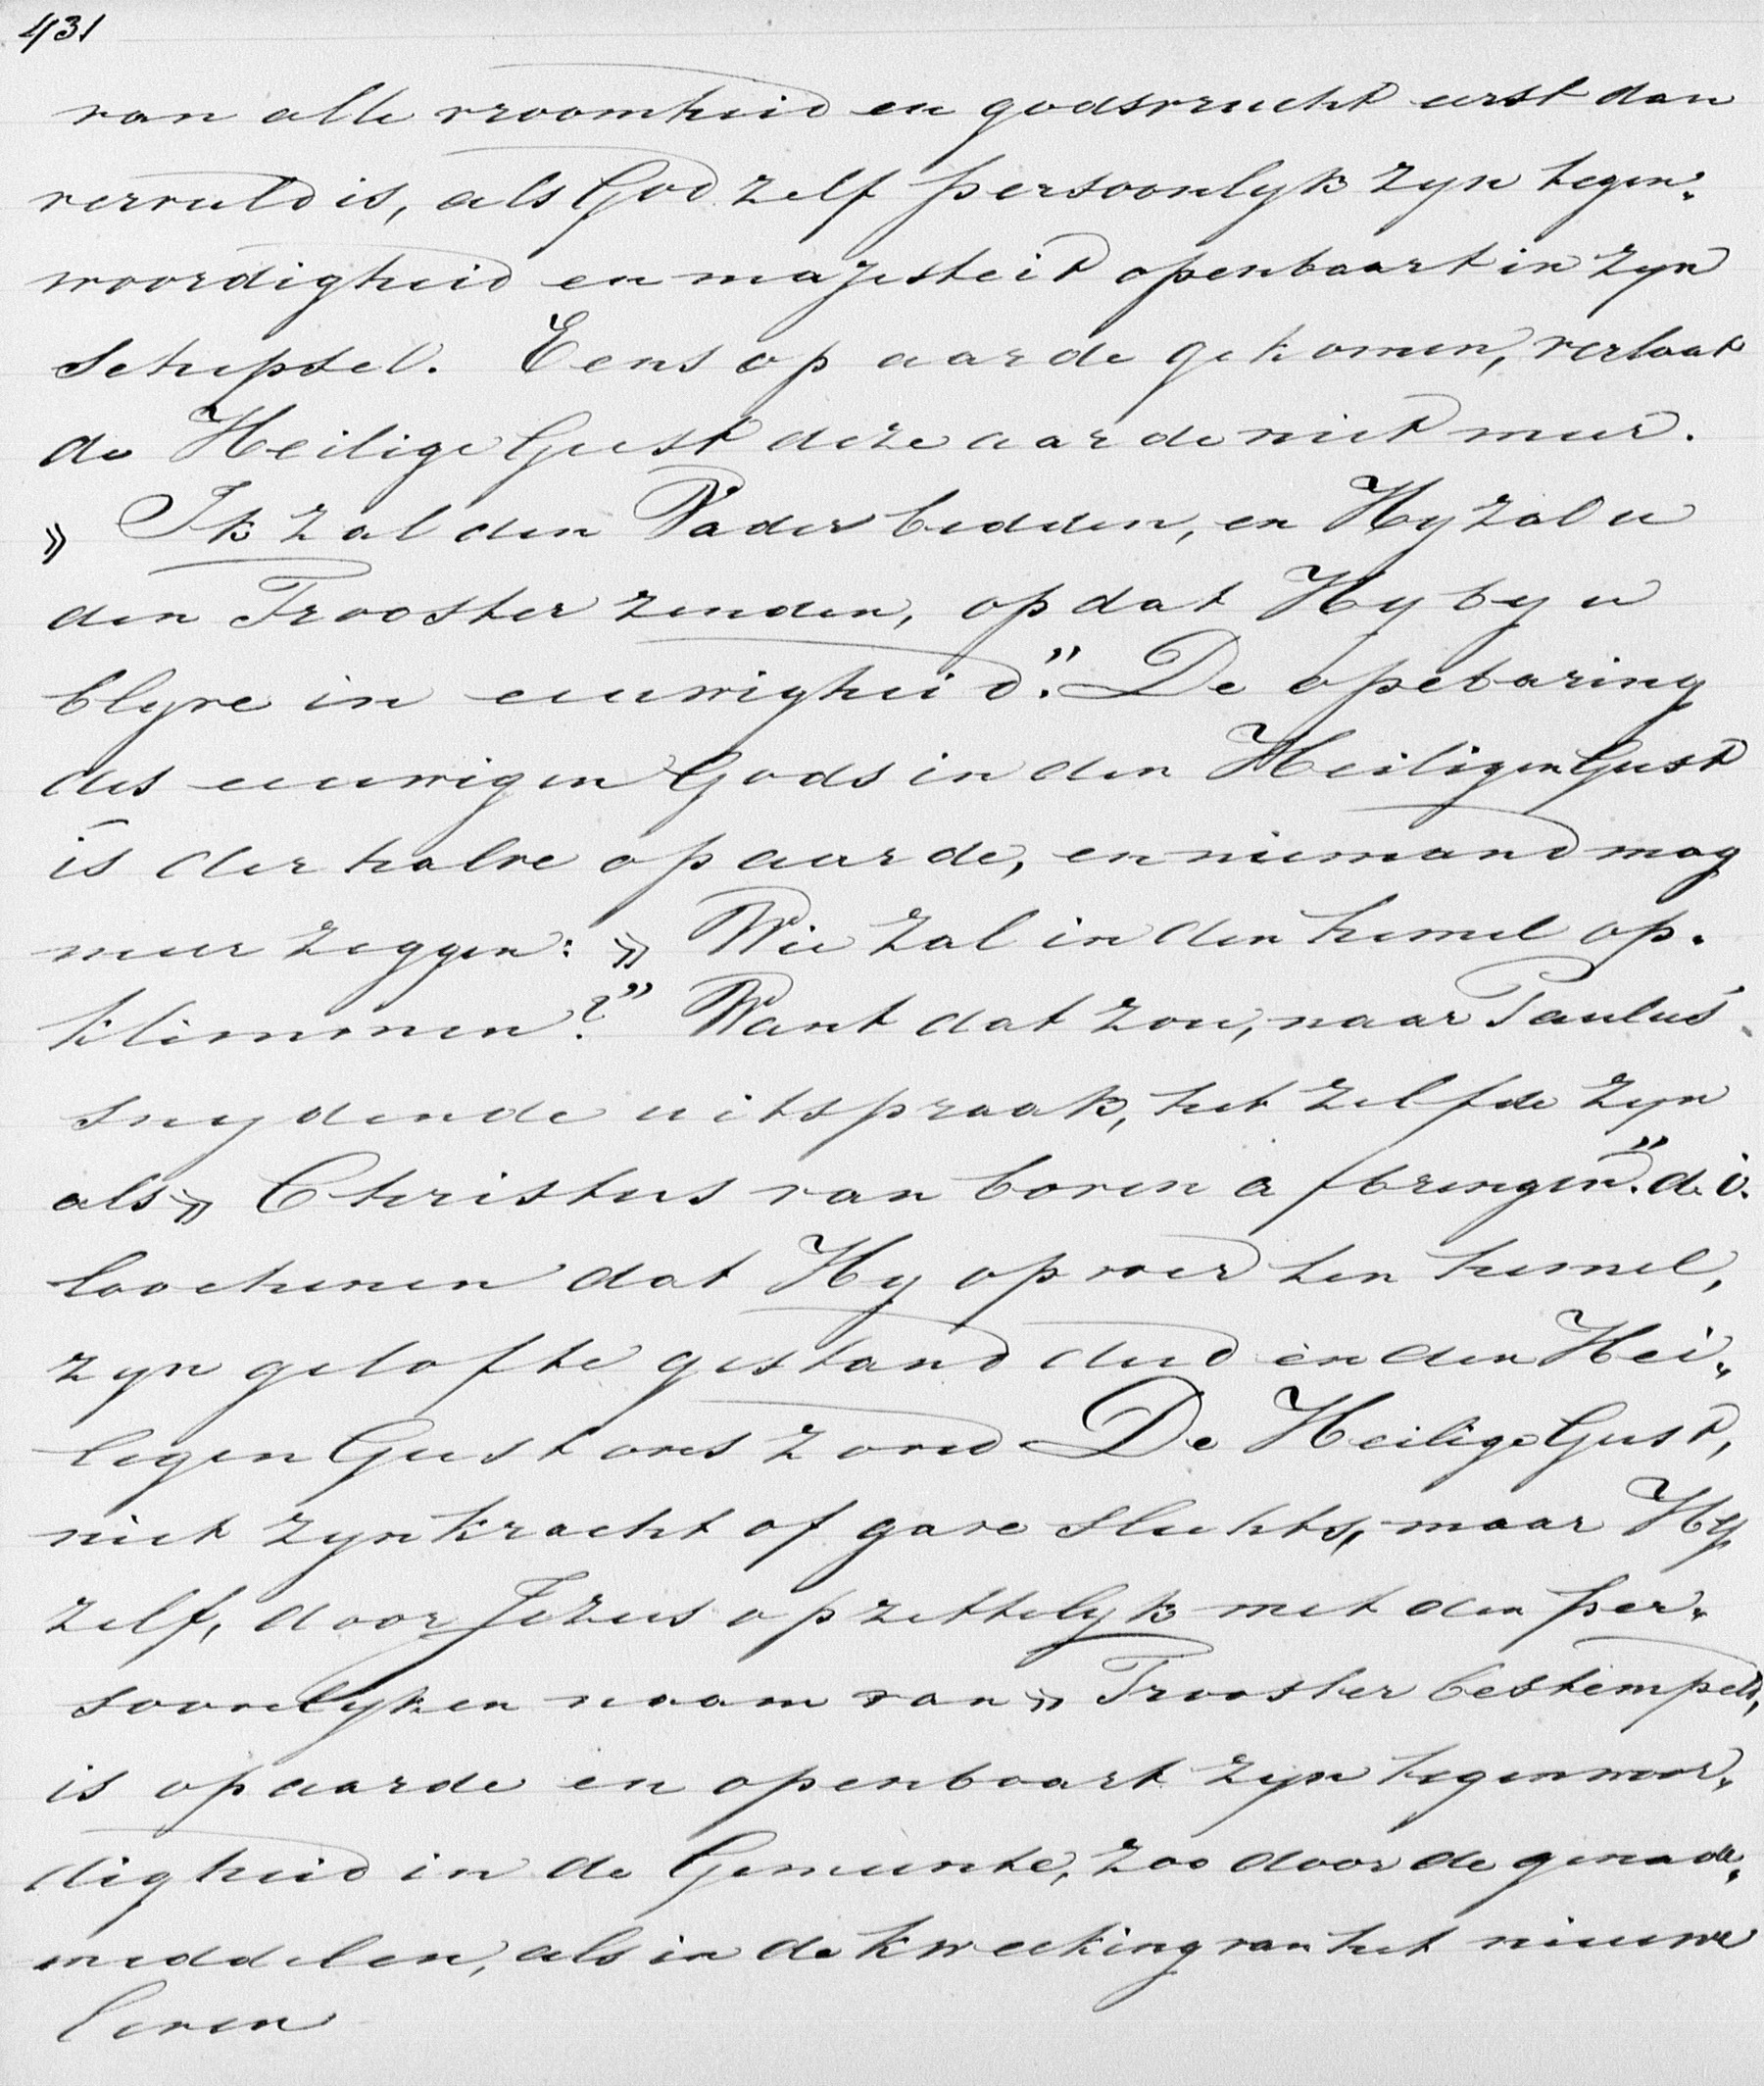 431
van alle vroomheid en godsvrucht eerst dan
vervuld is, als God zelf persoonlyk zyn tegen„
woordigheid en majesteit openbaart in zyn
schepsel. Eens op aarde gekomen, verlaat
de Heilige Geest deze aarde niet meer.
» Ik zal den Vader bidden, en Hy zal u
den Trooster zenden, opdat Hy by u
blyve in eeuwigheid." De opebaring
des eeuwigen Gods in den Heiligen Geest
is derhalve op aarde, en niemand mag
meer zeggen: » Wie zal in den hemel op.
klimmen?" Want dat zou, naar Paulus'
snydende uitspraak, het zelfde zyn
als » Christus van boven afbrengen". d. i.
loochenen dat Hy opvoer ten hemel,
zyn gelofte gestand deed en den Hei„
ligen Geest ons zond De Heilige Geest,
niet zyn kracht of gave slechts, maar Hy
zelf, door Jezus opzettelyk met den per„
soonlyken naam van » Trooster bestempeld,
is op aarde en openbaart zyn tegenwoor„
digheid in de Gemeente, zoo door de genade„
middelen, als in de kweeking van het nieuwe
leven